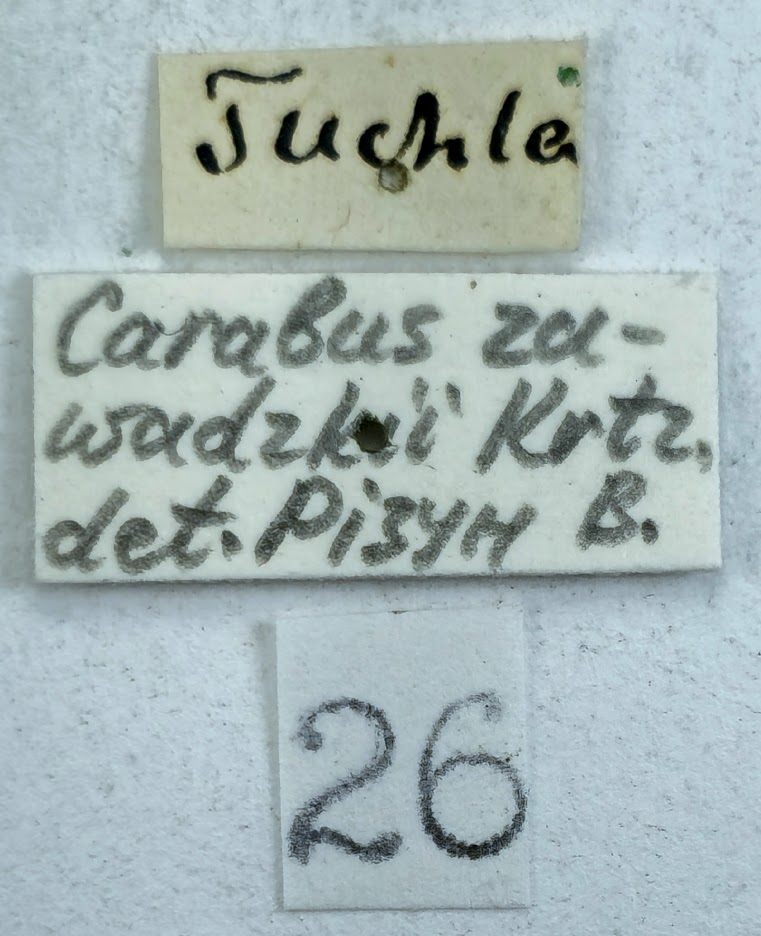 Tuchla
Carabus za-
wadzkii Krtz.
det. Pisym B.
26